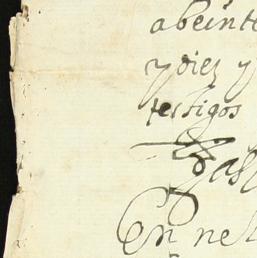 abeinte
y diez y
testigos
En nel